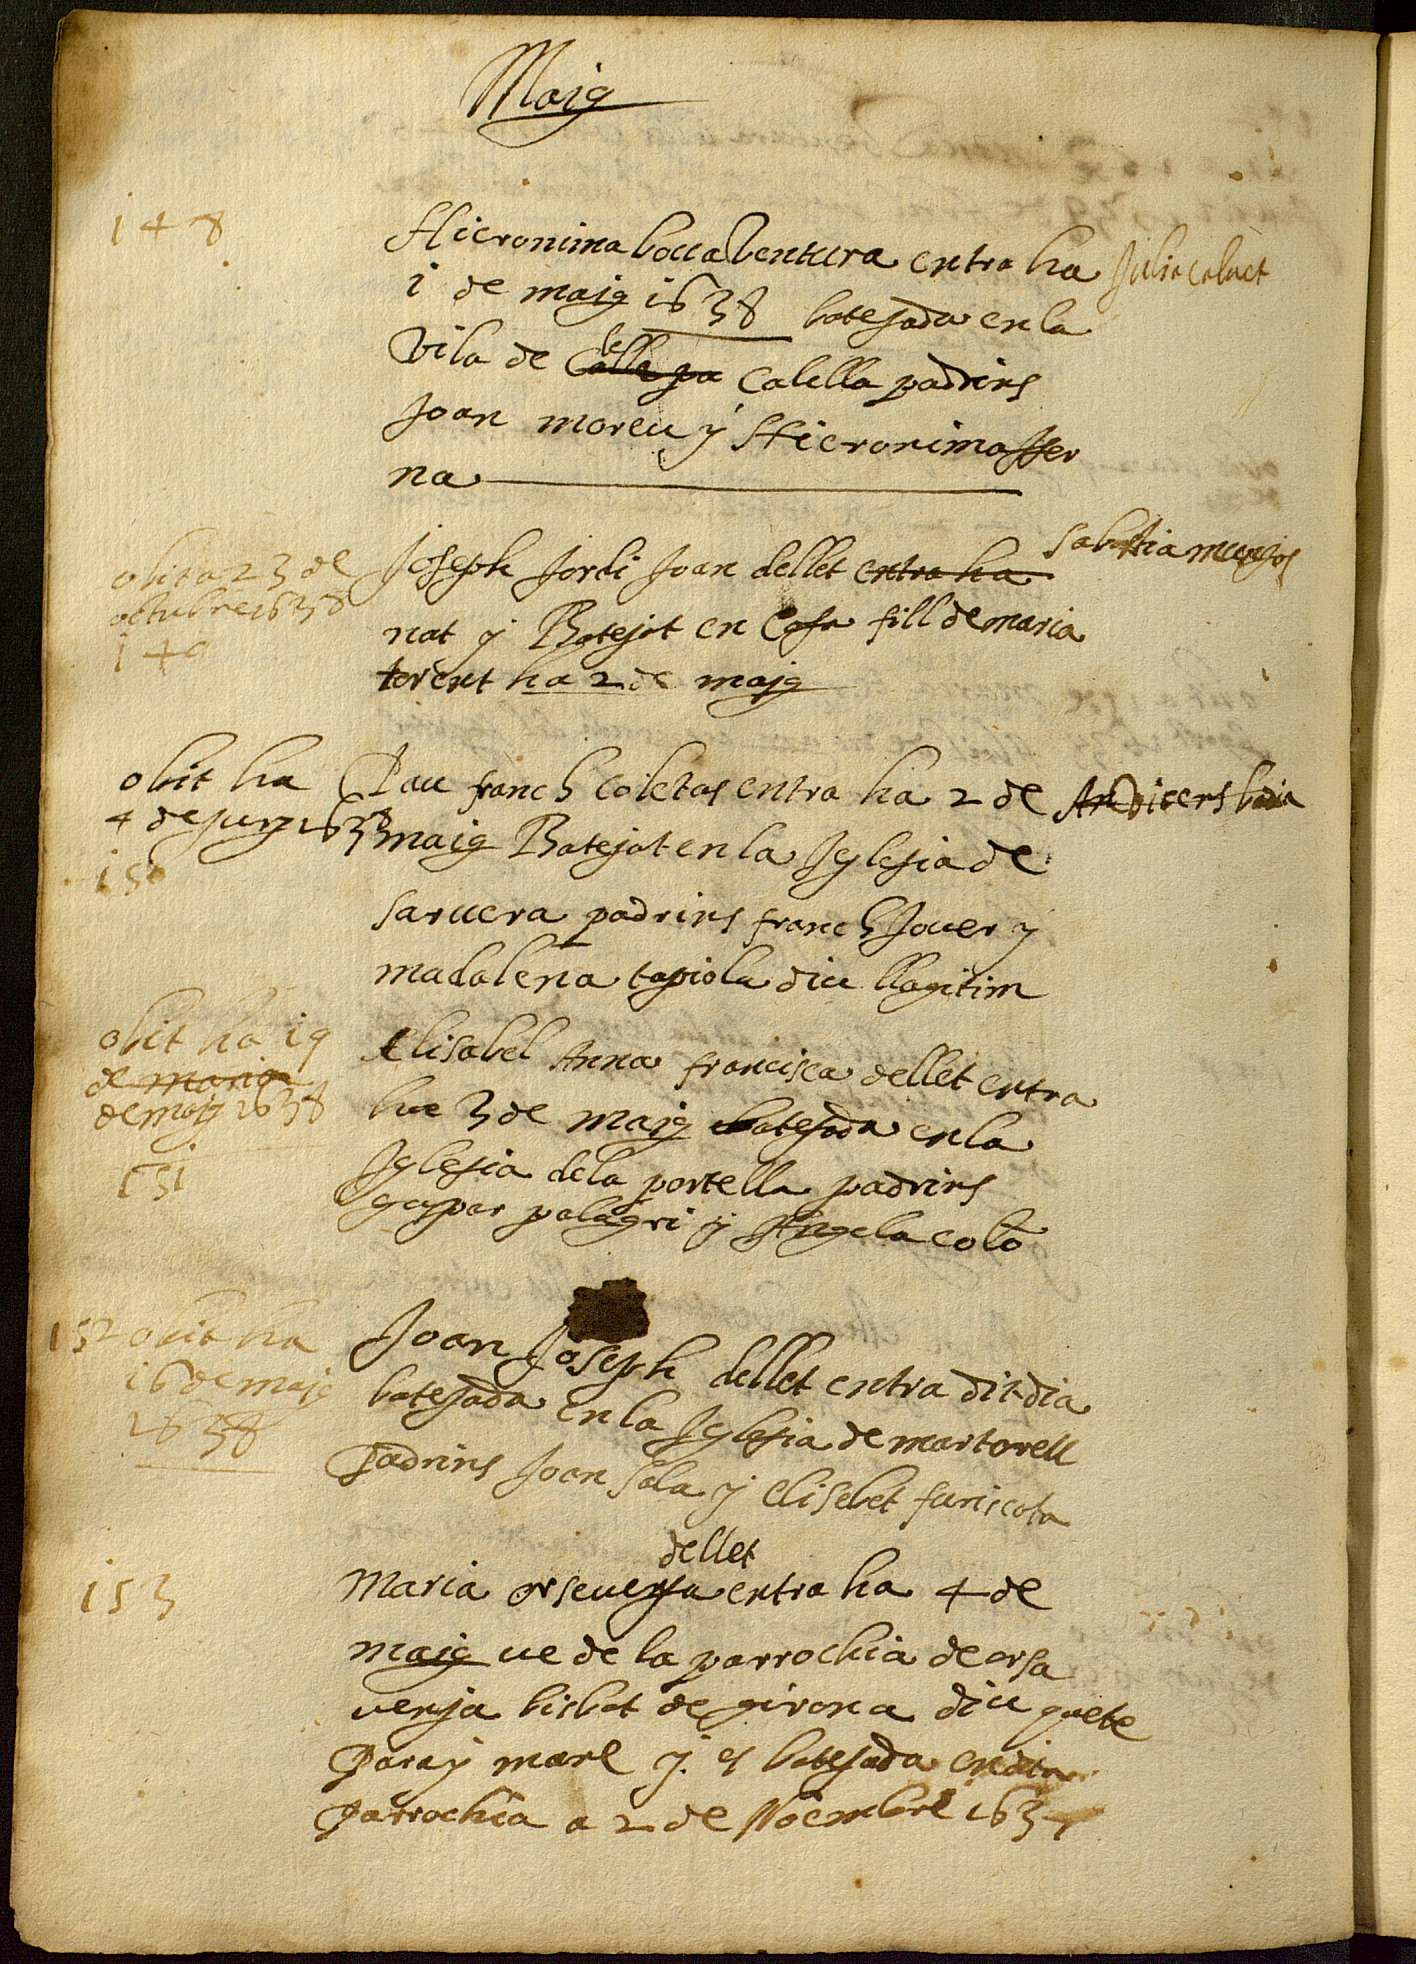 Maig
148
Hieronima boua Ventura entra ha
i de maig 1638 batejada en la
Vila de Calella padrins
Joan moreu y Hieronima
na
obit a 23 de
octubre 1638
Joseph Jordi Joan dellet entra ha
nat y Batejat en Casa fill de maria
torent ha 2 de maig
obit ha
4 de juny 1638
150
Pau franch coletas entra ha 2 de
maig Batejat en la Iglesia de
saruera padrins franch Jouer y
madalena tapiola diu llagitim
obit ha 19
de maria
de maig 1638
151
Elisabel Anna francisca dellet entra
ha 3 de maig batejada en la
Iglesia de la portella padrins
gaspar palagri y Angela colo
152 obit ha
16 de maig
1638
Joan Joseph dellet entra dit dia
batejada en la Iglesia de martorell
Padrins Joan Sala y elisebet
153
dellet
Maria orseuenja entra ha 4 de
maig ue de la parrochia de orsa
uenja bisbat de girona diu que te
Para y mare y es batejada en dita
Parrochia a 2 de Noembre 1637